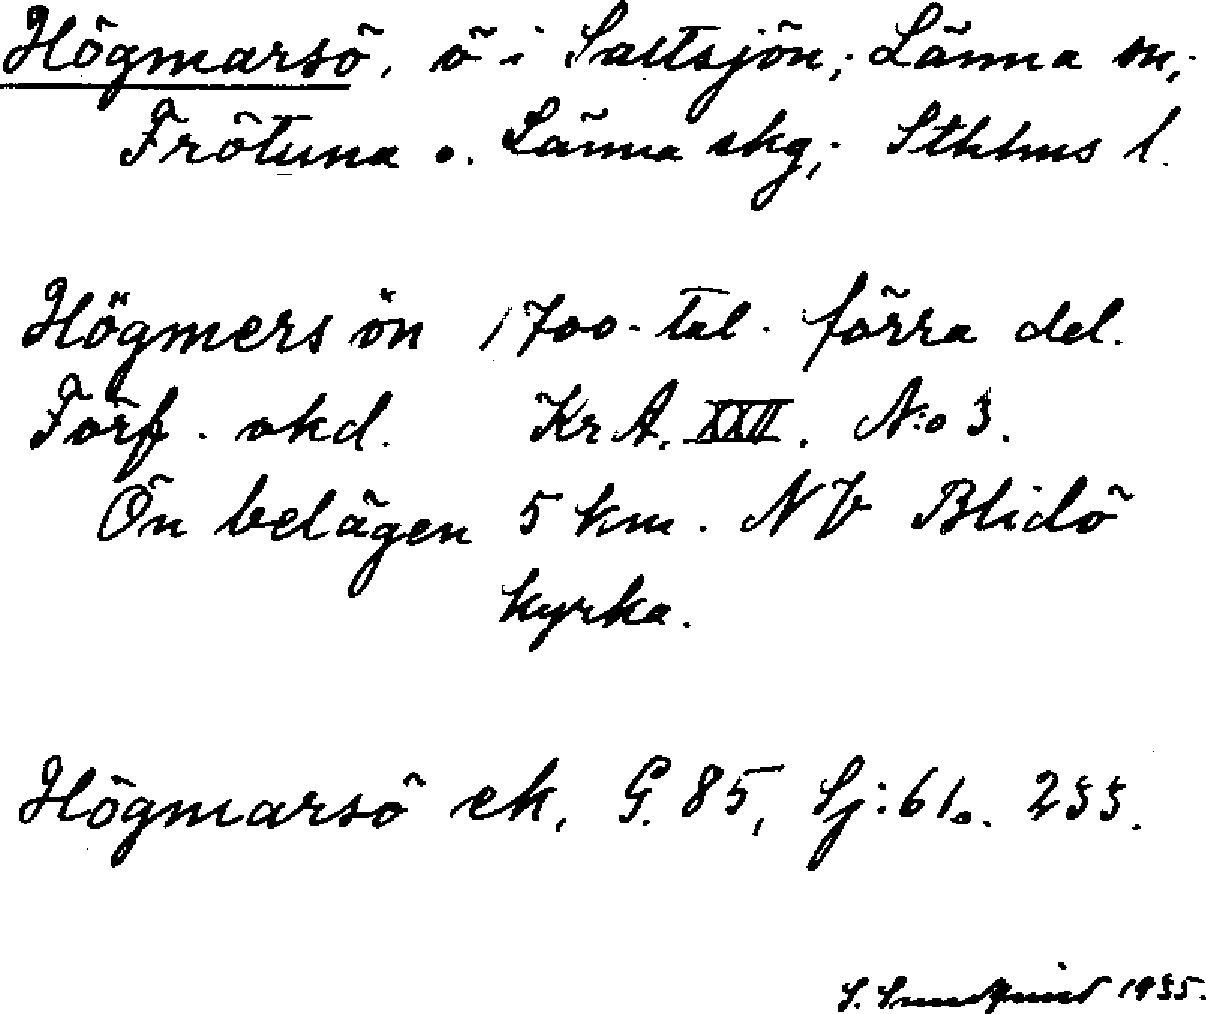 Högmarsö, ö i Saltsjön; Länna sn;
Frötuna o. Länna skg; Sthlms l.
Högmers ön 1700-tal. förra del.
Förf. okd. Kr A. XXII. N:o 3.
Ön belägen 5 km. NV Blidö
kyrka.
Högmarsö ek. G. 85, Sj: 61 o. 233.
S. Sundqvist 1935.